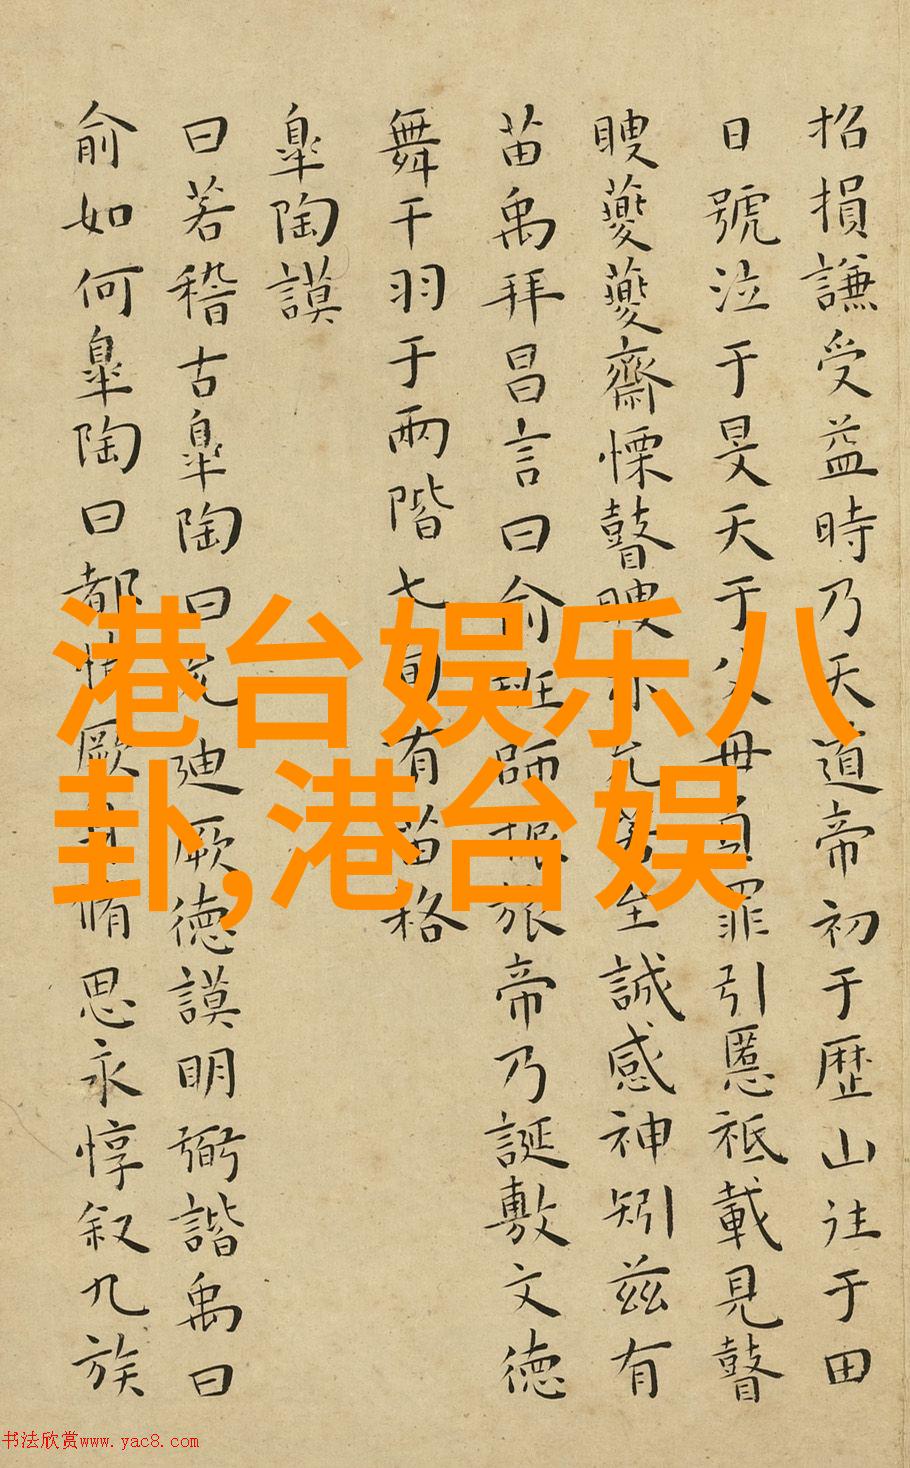 招損謙受益時乃天道帝初于歷山往于田
日號泣于旻天于父母負罪引慝祗載見瞽
瞍夔夔齋慄瞽瞍亦允若至誠感神矧兹有
苗禹拜昌言曰俞班師振旅帝乃誕敷文德
舞干羽于兩階七旬有苗格
皋陶謨
曰若稽古皋陶曰允迪厥德謨明弼諧禹曰
俞如何皋陶曰都慎厥身脩思永惇叙九族
港台娱乐八
卦,港台娱
书法欣赏www.yac8.com